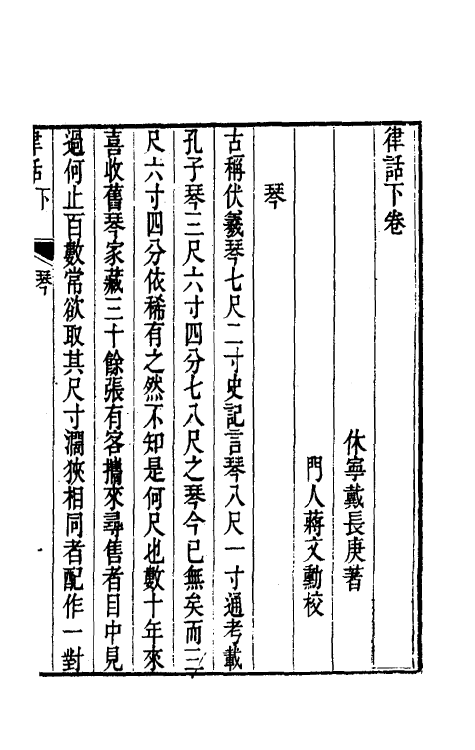 律話下卷
休寧戴長庚著
門人蔣文勳校
琴
古稱伏羲琴七尺二寸史記言琴八尺一寸通考載
孔子琴三尺六寸四分七八尺之琴今已無矣而三
尺六寸四分依稀有之然不知是何尺也數十年來
喜收舊琴家藏三十餘張有客攜來尋售者目中見
過何止百數常欲取其尺寸濶狹相同者配作一對
律話 下 琴